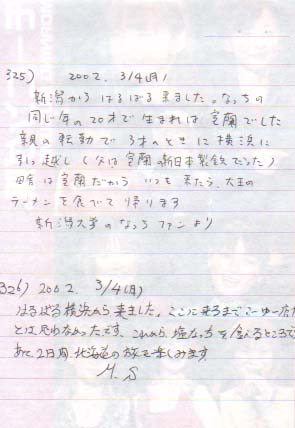 325) 2002. 3/4(月)
新潟からはるばる来ました。なっちの
同じ年の20才で生まれは室蘭でした
親の転勤で 3才のときに横浜に
引っ越し (父は室蘭の新日本製鉄だった)
田舎は室蘭だから いつも来たら、大王の
ラーメンを食べて帰ります
新潟大学のなっちファンより
326) 2002. 3/4(月)
はるばる横浜から来ました。ここに来るまでこーゆー店だ
とは思わなかったです。これから塩なっちを食べるところで
あと2日間、北海道の旅を楽しみます。
M. S